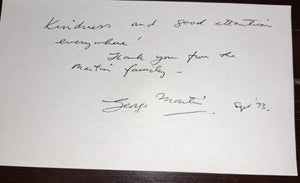 Kindness and good attention
everywhere!
Thank you from the
Martin family -
George Martin Sept '93.